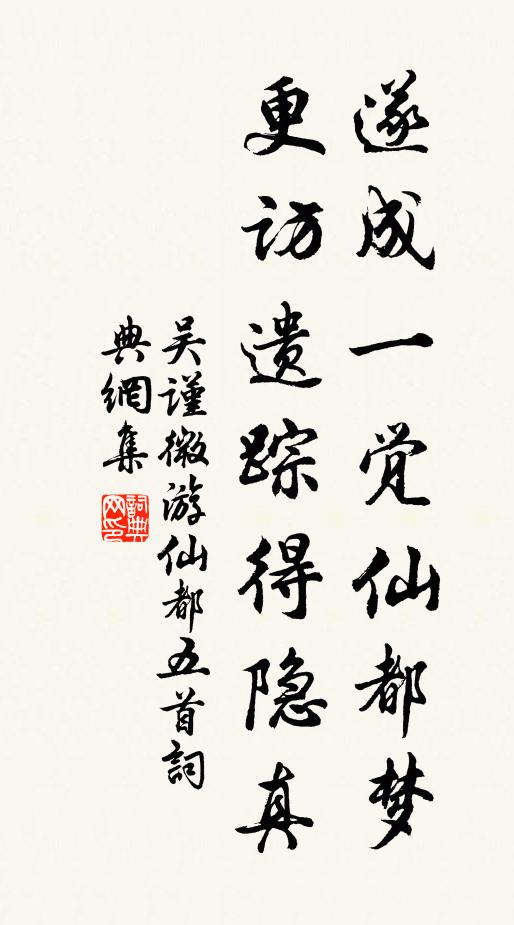 遂成一觉仙都梦
更访遗踪得隐真
吴谨微游仙都五首詞
典網集
詞典
网印